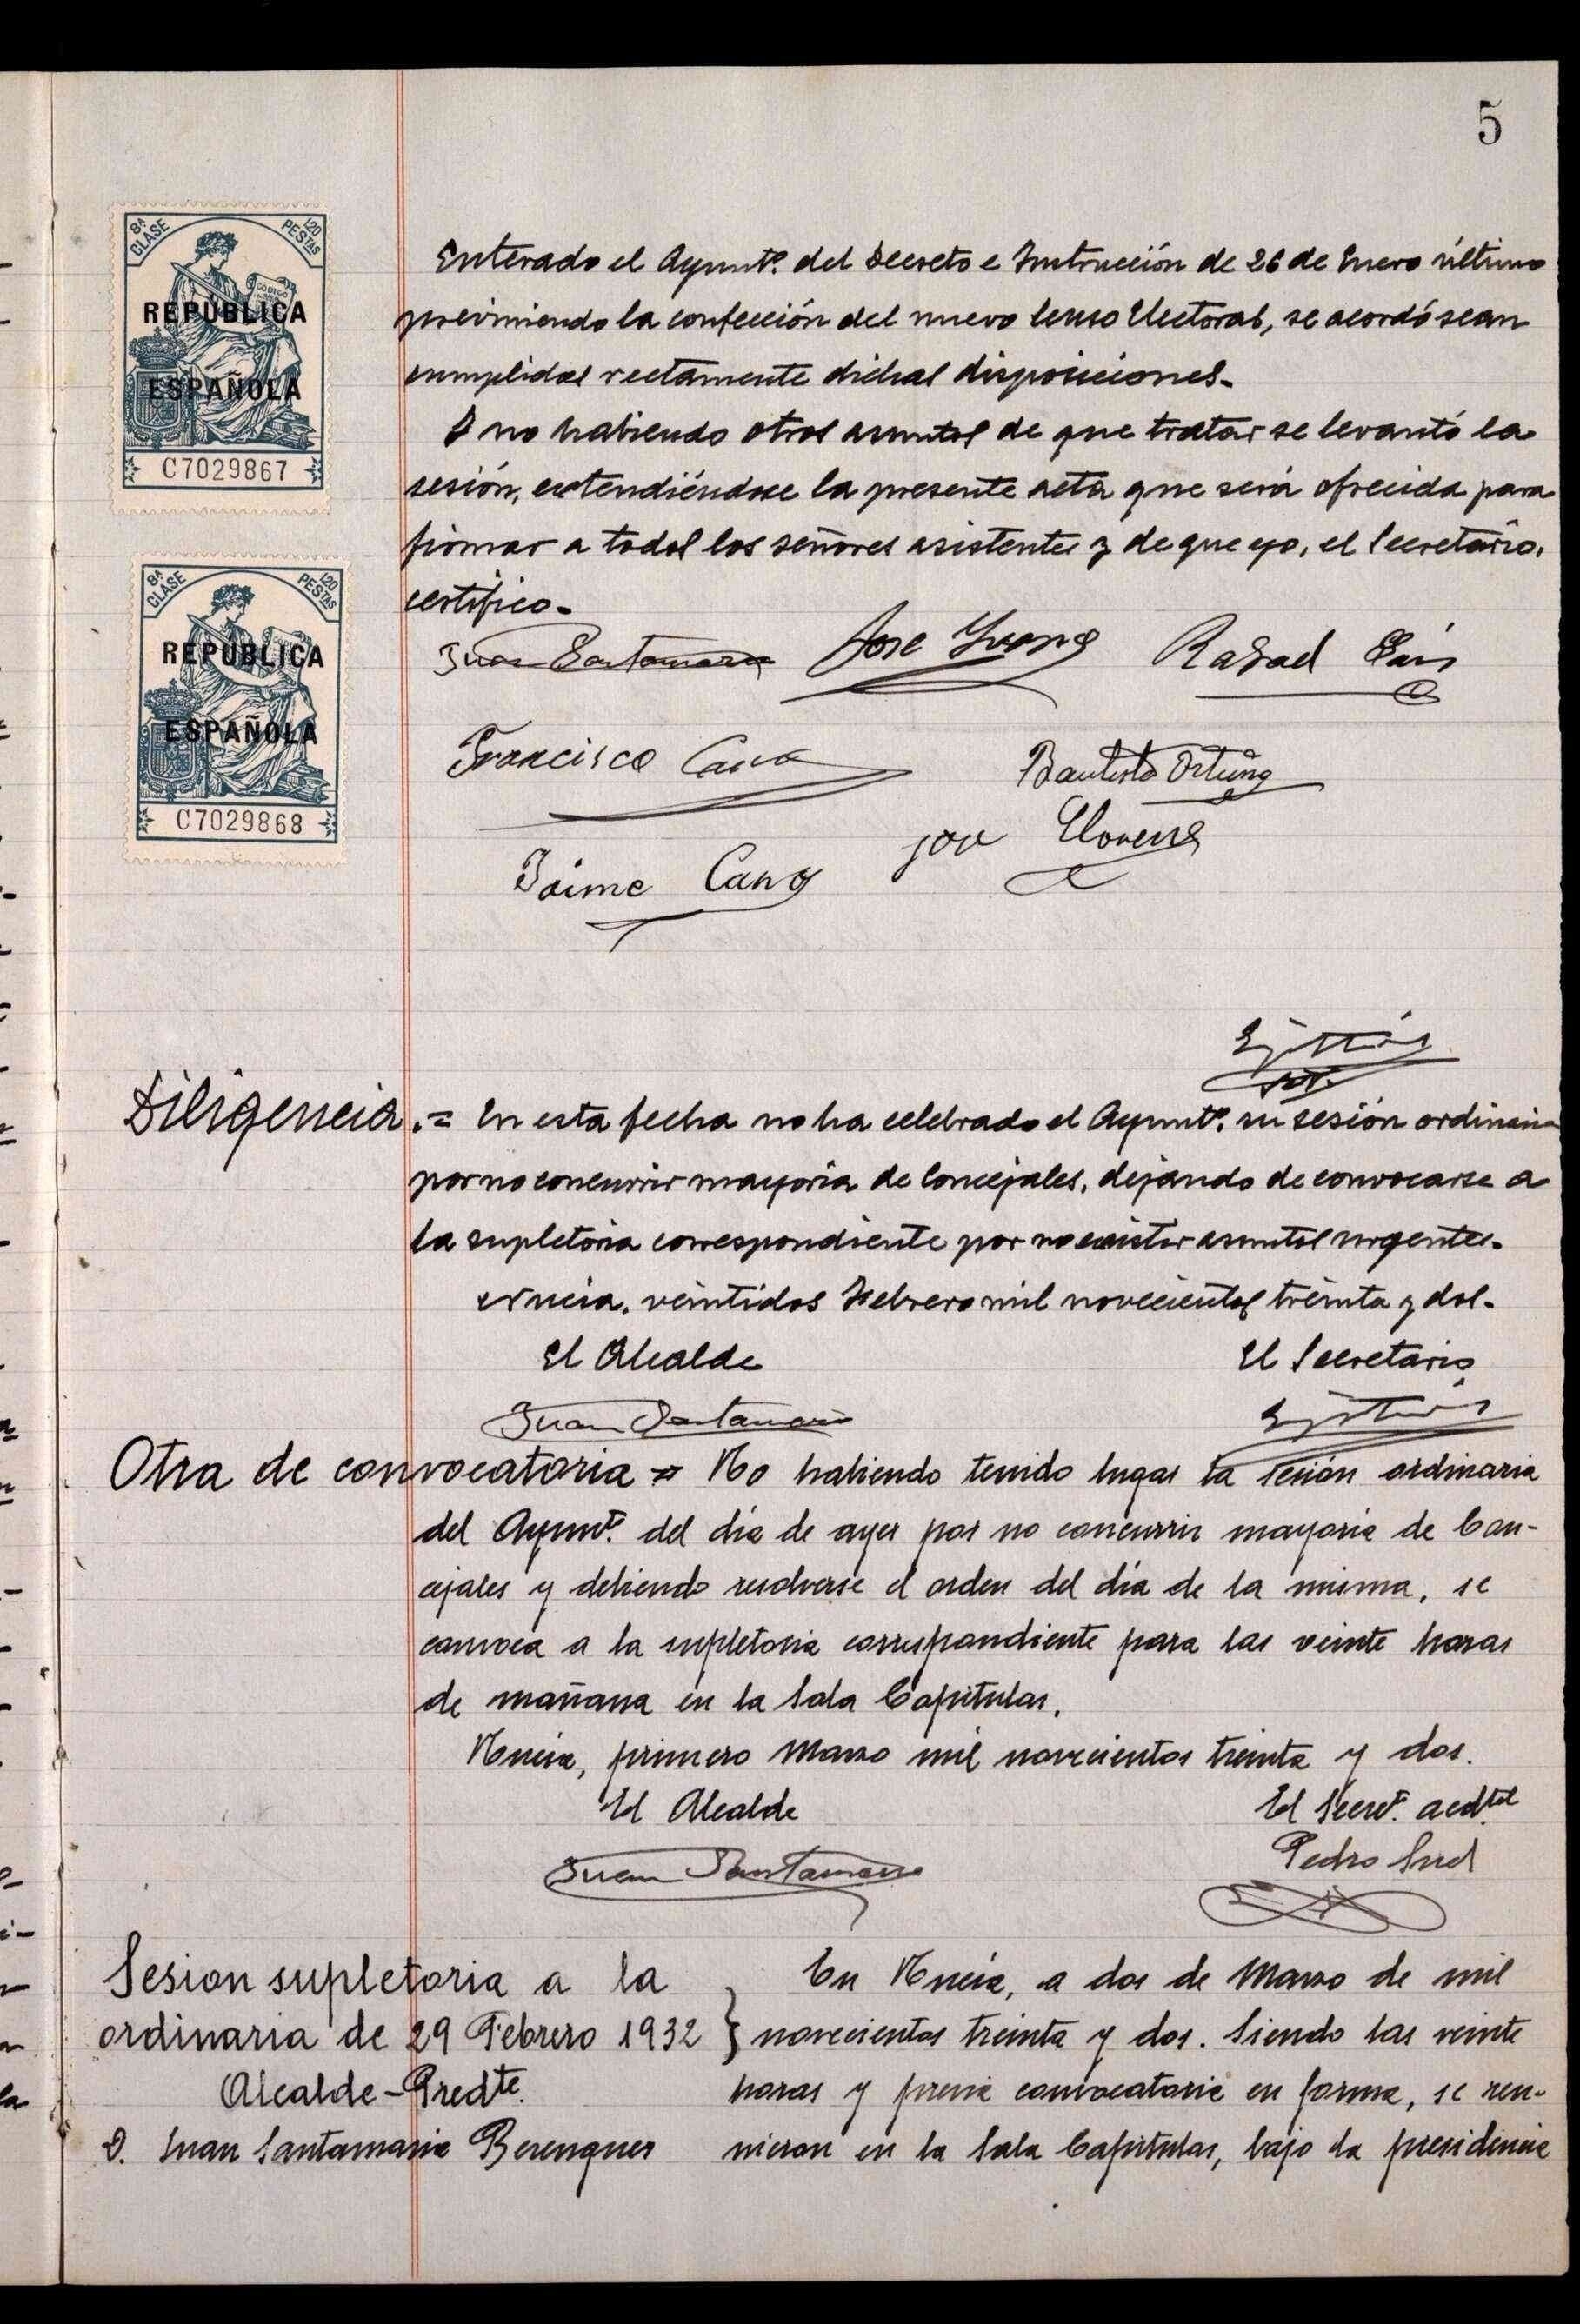 5
8ª CLASE
1,20 PESTAS
REPÚBLICA
ESPAÑOLA
C7029867
8ª CLASE
1,20 PESTAS
REPÚBLICA
ESPAÑOLA
C7029868
Enterado el Ayuntº. del Decreto e Instrucción de 26 de Enero último
previniendo la confección del nuevo Censo Electoral, se acordó sean
cumplidas rectamente dichas disposiciones.
Y no habiendo otros asuntos de que tratar se levantó la
sesión, extendiéndose la presente acta que será ofrecida para
firmar a todos los señores asistentes y de que yo, el Secretario,
certifico.
Juan Santamaria Jose Rafael
Francisco Cano Bautista Ortuño
Jaime Cano Llorens
Diligencia.= En esta fecha no ha celebrado el Ayuntº. su sesión ordinaria
por no concurrir mayoria de Concejales, dejando de convocarse a
la supletoria correspondiente por no existir asuntos urgentes.
Nucia, veintidos Febrero mil novecientos treinta y dos.
El Alcalde El Secretario
Juan Santamaria
Otra de convocatoria = No habiendo tenido lugar la sesión ordinaria
del Ayuntº. del día de ayer por no concurrir mayoria de Con-
cejales y debiendo resolverse el orden del día de la misma, se
convoca a la supletoria correspondiente para las veinte horas
de mañana en la Sala Capitular.
Nucia, primero Marzo mil novecientos treinta y dos.
El Alcalde El Secretº. acdtal
Juan Santamaria Pedro
Sesion supletoria a la
ordinaria de 29 Febrero 1932
Alcalde-Predte.
D. Juan Santamaria Berenguer
En Nucia, a dos de Marzo de mil
novecientos treinta y dos. Siendo las veinte
horas y previa convocatoria en forma, se reu-
nieron en la Sala Capitular, bajo la presidencia